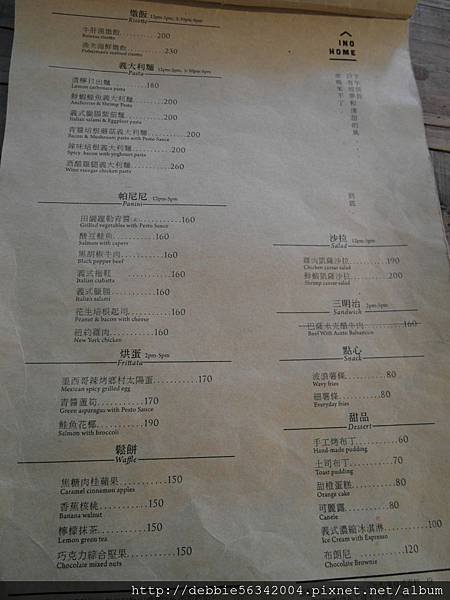 燉飯 12pm-2pm, 5:30pm-8pm
Risotto
牛肝菌燉飯 200
Boletus risotto
漁夫海鮮燉飯 230
Fisherman's seafood risotto
義大利麵 12pm-2pm, 5:30pm-8pm
Pasta
清檸白出麵 180
Lemon carbonara pasta
鮮蝦鯷魚義大利麵 200
Anchovies & Shrimp Pasta
義式臘腸紫茄麵 200
Italian salami & Eggplant pasta
青醬培根蘑菇義大利麵 200
Bacon & Mushroom pasta with Pesto Sauce
辣味培根義大利麵 200
Spicy bacon with yoghourt pasta
酒醋雞腿義大利麵 260
Wine vinegar chicken pasta
帕尼尼 12pm-5pm
Panini
田園蔬勒青醬 160
Grilled vegetables with Pesto Sauce
酸豆鮭魚 160
Salmon with capers
黑胡椒牛肉 160
Black pepper beef
義式拖鞋 160
Italian ciabatta
義式臘腸 160
Italian salami
花生培根起司 160
Peanut & bacon with cheese
紐約雞肉 160
New York chicken
烘蛋 2pm-5pm
Frittata
墨西哥辣烤鄉村太陽蛋 170
Mexican spicy grilled egg
青醬蘆筍 170
Green asparagus with Pesto Sauce
鮭魚花椰 190
Salmon with broccoli
鬆餅
Waffle
焦糖肉桂蘋果 150
Caramel cinnemon apples
香蕉核桃 150
Banana walnut
檸檬抹茶 150
Lemon green tea
巧克力綜合堅果 150
Chocolate mixed nuts
INO
HOME
沙拉 12pm-5pm
Salad
雞肉凱薩沙拉 190
Chicken caesar salad
鮮蝦凱薩沙拉 200
Shrimp caesar salad
三明治 2pm-5pm
Sandwich
巴薩米克醋牛肉 160
Beef With Aceto Balsamico
點心
Snack
波浪薯條 80
Wavy fries
細薯條 80
Everyday fries
甜品
Dessert
手工烤布丁 60
Hand-made pudding
土司布丁 70
Toast pudding
甜橙蛋糕 80
Orange cake
可麗露 80
Canele
義式濃縮冰淇淋 100
Ice Cream with Espresso
布朗尼 120
Chocolate Brownie
http://debbie56342004.pixnet.net/album